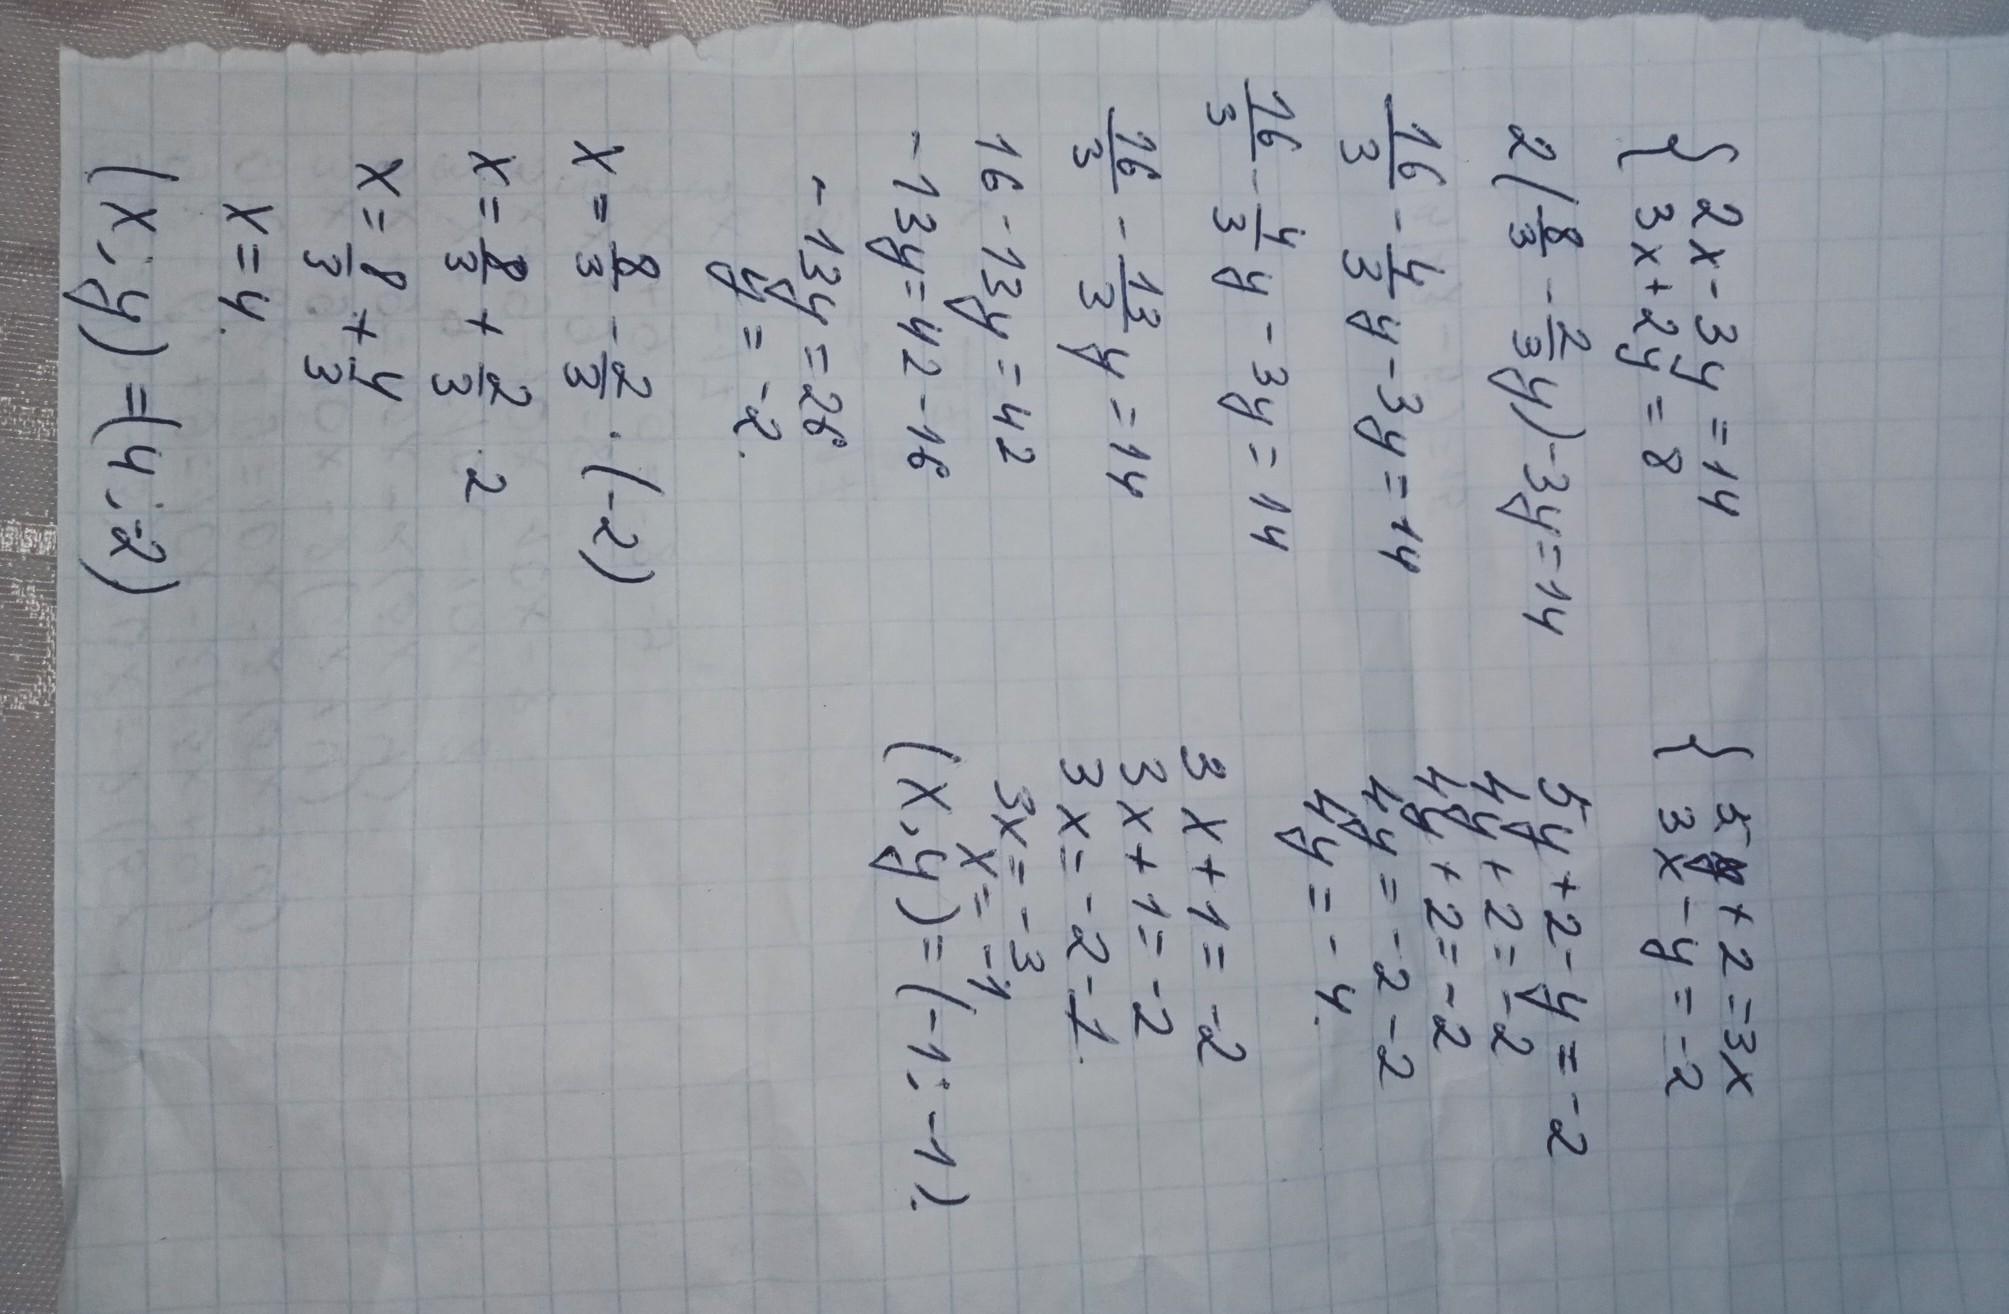 { 2x - 3y = 14
3x + 2y = 8
2(8/3 - 2/3 y) - 3y = 14
16/3 - 4/3 y - 3y = 14
16/3 - 4/3 y - 3y = 14
16/3 - 13/3 y = 14
16 - 13y = 42
- 13y = 42 - 16
- 13y = 26
y = -2.
x = 8/3 - 2/3 · (-2)
x = 8/3 + 2/3 · 2
x = 8/3 + 4/3
x = 4.
(x; y) = (4; -2)
{ 5y + 2 = 3x
3x - y = -2
5y + 2 - y = -2
4y + 2 = -2
4y + 2 = -2
4y = -2 - 2
4y = - 4.
3x + 1 = -2
3x + 1 = -2
3x = -2 - 1.
3x = -3
x = -1
(x, y) = (-1; -1).